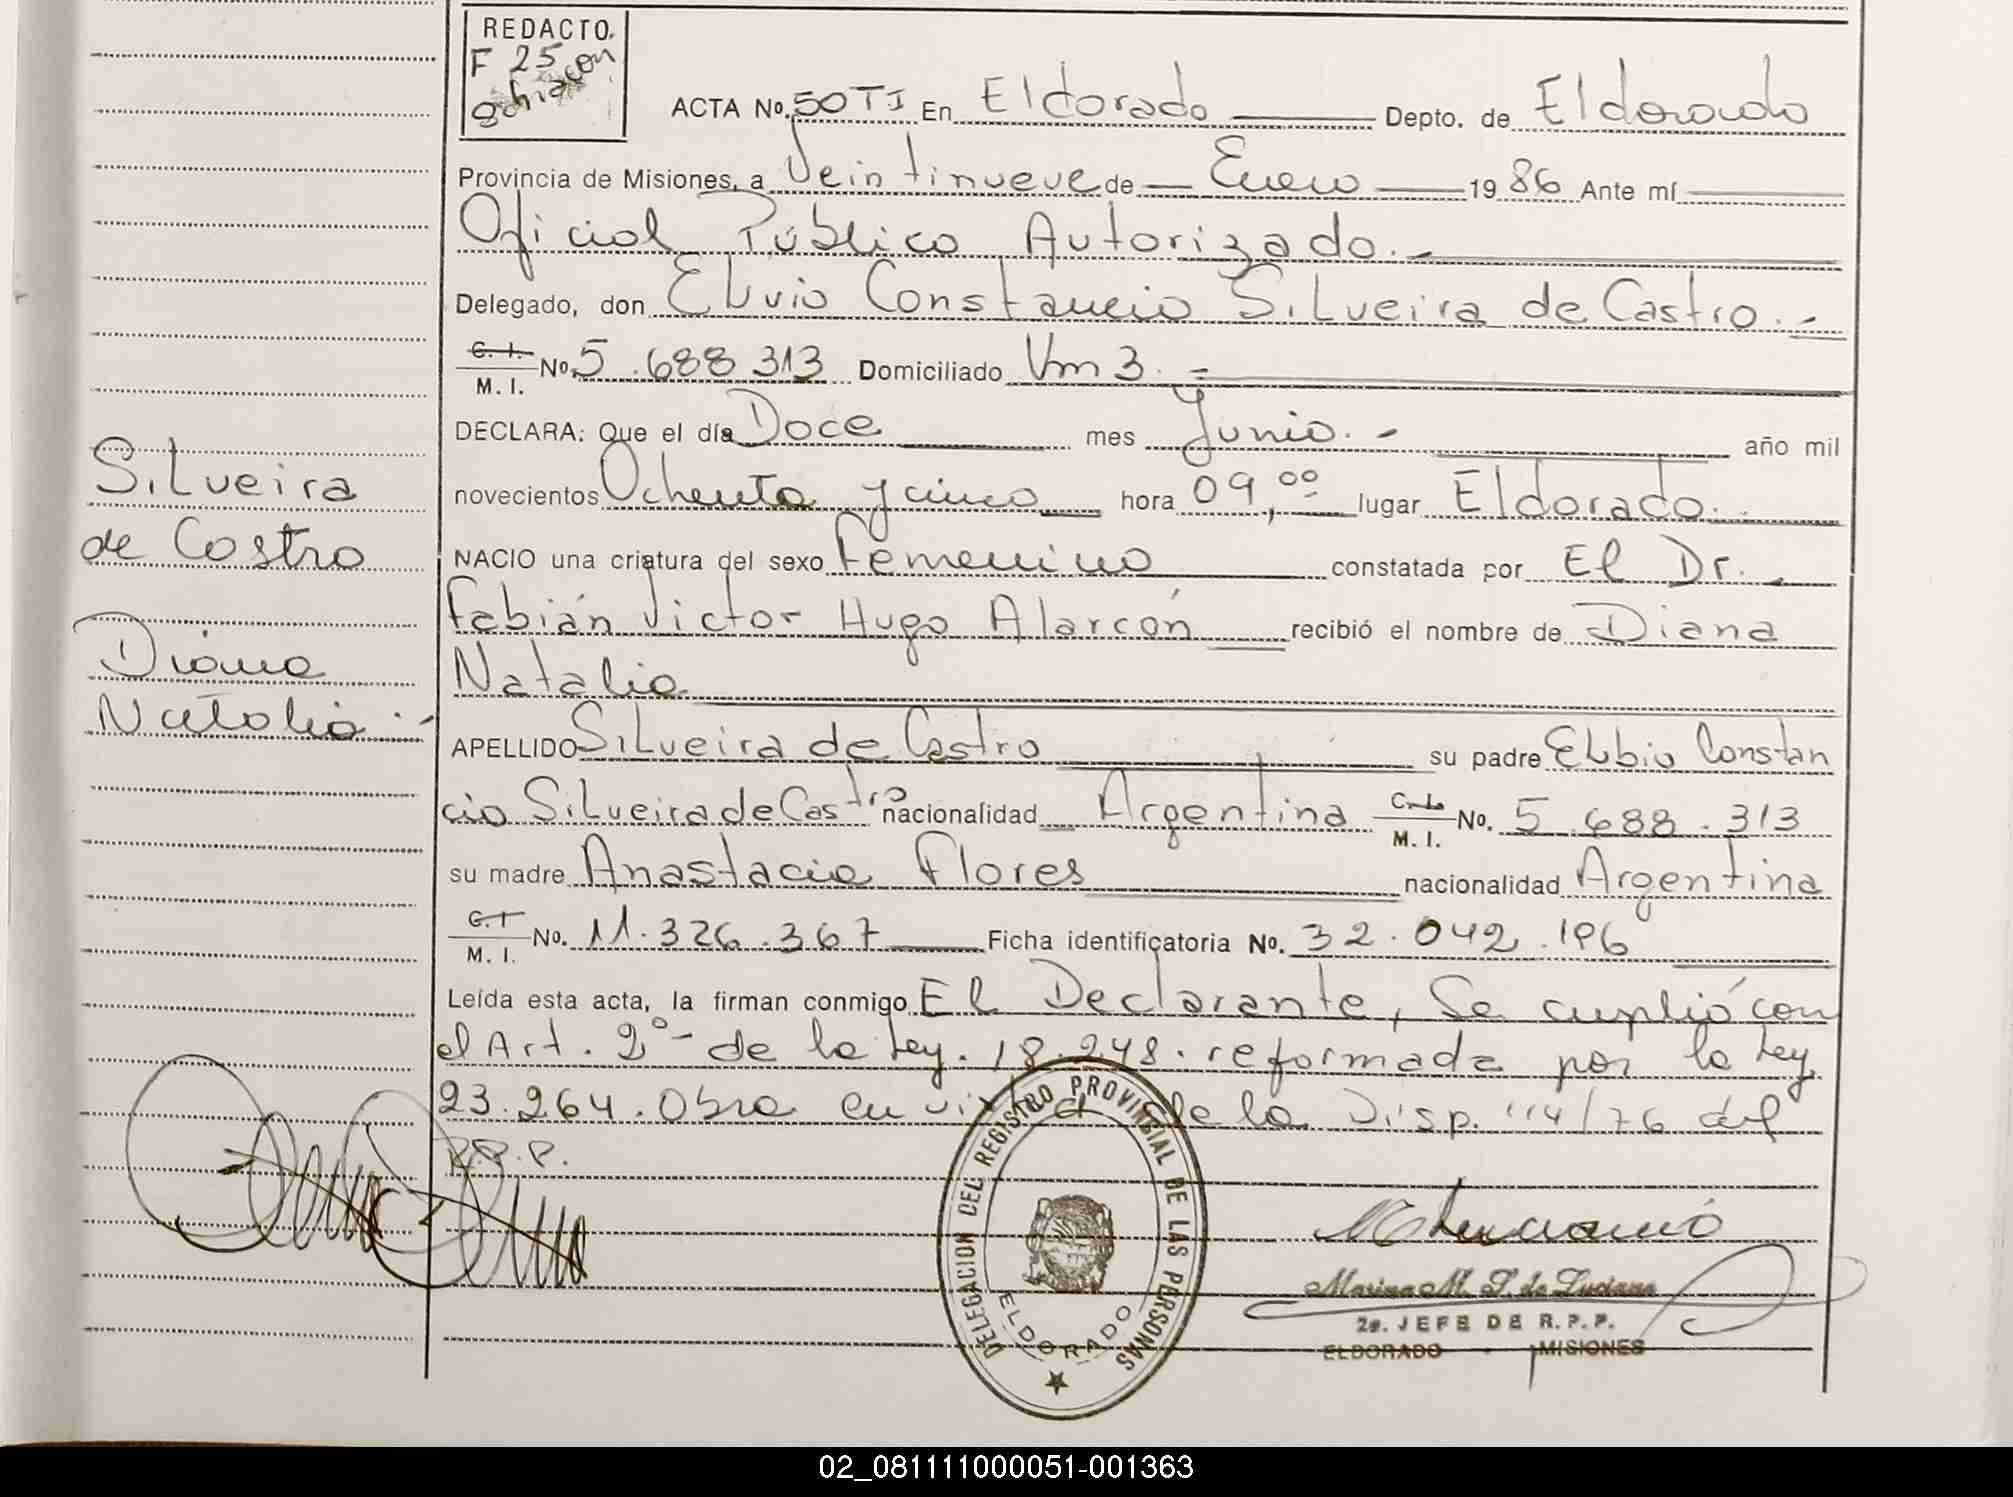 REDACTO.
F 25
ACTA No. 50 TI En Eldorado Depto. de Eldorado
Provincia de Misiones, a Veintinueve de Enero 1986 Ante mí
Oficial Público Autorizado.-
Delegado, don Elvio Constancio Silveira de Castro.-
C. I. M. I. No. 5.688313 Domiciliado Km 3.-
DECLARA: Que el día Doce mes Junio.- año mil
novecientos Ochenta y cinco hora 09,00 lugar Eldorado.-
NACIO una criatura del sexo Femenino constatada por El Dr.
Fabián Victor Hugo Alarcón recibió el nombre de Diana
Natalia
APELLIDO Silveira de Castro su padre Elbio Constan
cio Silveira de Castro nacionalidad Argentina M. I. No. 5.688.313
su madre Anastacia Flores nacionalidad Argentina
C. I. M. I. No. 11.326.367 Ficha identificatoria No. 32.042.196
Leída esta acta, la firman conmigo El Declarante, Se cumplió con
el Art. 2º- de la Ley. 18.248. reformada por la Ley
23.264. Obra en virtud de la Disp. 114/76 del
R.P.P.
Silveira
de Castro
Diana
Natalia.-
DELEGACION DEL REGISTRO PROVINCIAL DE LAS PERSONAS
ELDORADO
Marina M. T. de Luciano
2a. JEFE DE R. P. P.
ELDORADO - MISIONES
02_081111000051-001363